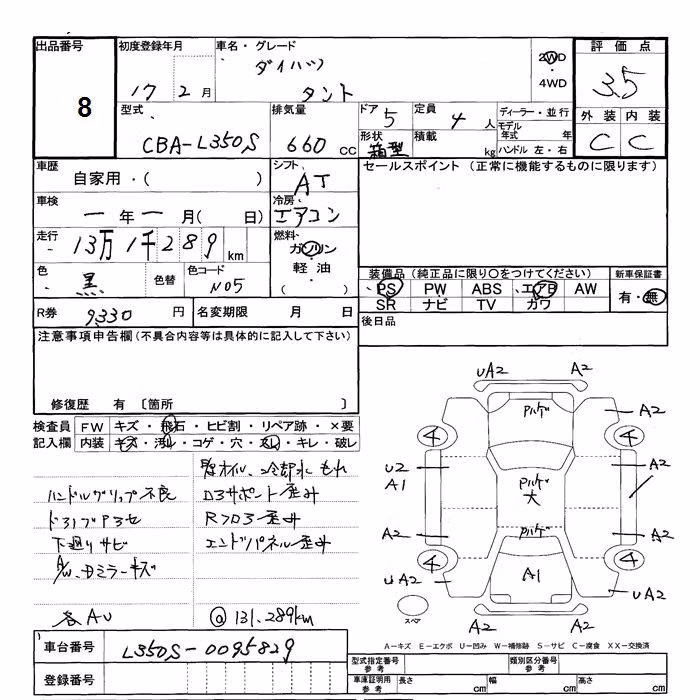 出品番号 初度登録年月 車名・グレード 評価点
8
ダイハツ 2WD ・4WD 3.5
17 2月 タント
型式 排気量 ドア 5 定員 4 人 ディーラー・並行 外装 内装
CBA-L350S 660 cc 形状 箱型 積載 kg モデル年式 年 C C
ハンドル 左・右
車歴 自家用・( ) シフト AT セールスポイント (正常に機能するものに限ります)
車検 一年一月( 日) 冷房 エアコン
走行 13万1千289 km 燃料 ガソリン
・軽油 ( )
色 黒 色替 色コード N05
装備品 (純正品に限り〇をつけてください) 新車保証書
PS PW ABS エアB AW 有・無
SR ナビ TV カワ
R券 9330 円 名変期限 月 日 後日品
注意事項申告欄 (不具合内容等は具体的に記入して下さい)
修復歴 有 〔箇所 〕
検査員 FW キズ・飛石・ヒビ割・リペア跡・×要
記入欄 内装 キズ・汚れ・コゲ・穴・スレ・キレ・破レ
オイル、冷却水もれ
ハンドルグリップ不良 ロアサポート歪み
Rフロア歪み
下廻りサビ エンドパネル歪み
ミラーキズ
各AU @ 131.289km
UA2 A2
A2
4 4
U2 A2
A1
大
A2 A2
4 4
UA2 A1 UA2
スペア
A2 A2
A-キズ E-エクボ U-凹み W-補修跡 S-サビ C-腐食 XX-交換済
車台番号 L350S-0095829
登録番号
型式指定番号 参考 類別区分番号 参考
車庫証明用 参考 長さ cm 幅 cm 高さ cm